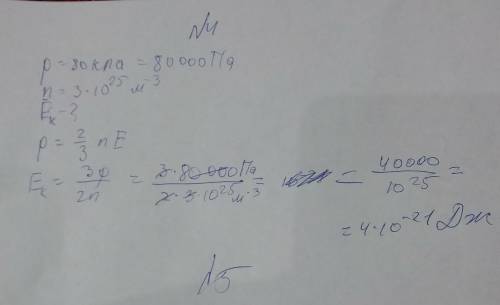 №4
p = 80 кПа = 80000 Па
n = 3·10²⁵ м⁻³
Eₖ - ?
p = 2/3 nE
Eₖ = 3p/2n = 3·80000Па/2·3·10²⁵м⁻³ = = 40000/10²⁵ =
= 4·10⁻²¹ Дж
№5